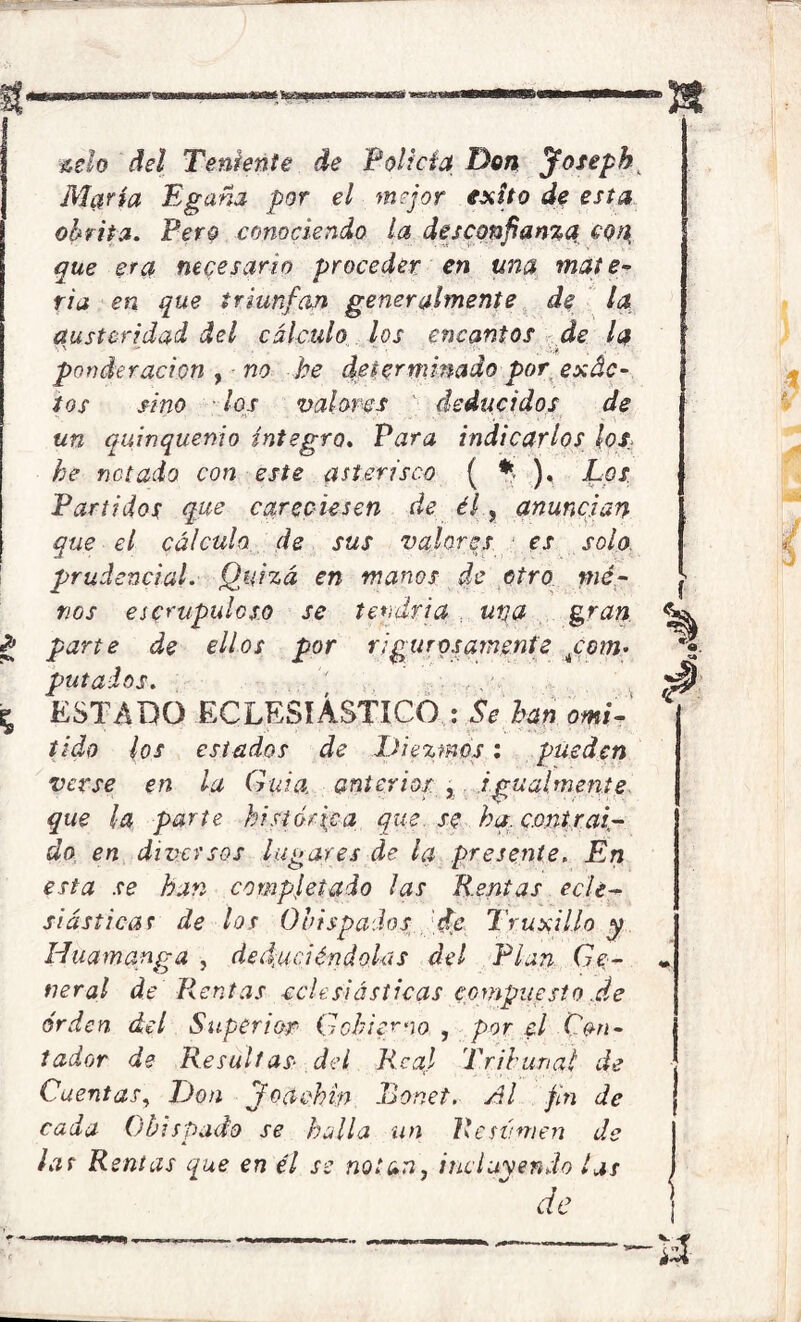 zelo del Teniente de Policía Don Joseph
María Egaña por el mejor exîto de esta
obrita. Pero conociendo la desconfianza con
que era necesario proceder en una mate-
ria en que triunfan generalmente de la
austeridad del cálculo los encantos de la
ponderacion , no he determinado por exâc-
tos sino los valores deducidos de
un quinquenio íntegro. Para indicarlos los
he notado con este asterisco ( * ). Los
Partidos que careciesen de él, anuncian
que el cálculo de sus valores es solo
prudencial. Quizá en manos de otro mé-
nos escrupuloso se tendria una gran
parte de ellos por rigurosamente com-
putados.
ESTADO ECLESIÁSTICO : Se han omi-
tido los estados de Diezmos : pueden
verse en la Guia anterior , igualmente
que la parte histórica que se ha contrai-
do en diversos lugares de la presente. En
esta se han completado las Rentas ecle-
siásticas de los Obispados de Truxillo y
Huamanga , deduciéndolas del Plan Ge-
neral de Rentas eclesiásticas compuesto de
órden del Superior Gobierno , por el Con-
tador de Resultas del Real Tribunal de
Cuentas, Don Joachîn Bonet. Al fin de
cada Obispado se halla un Resúmen de
las Rentas que en él se notan, incluyendo las
de